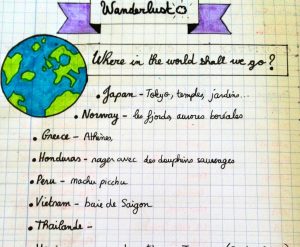 Wanderlust
Where in the world shall we go?
• Japan - Tokyo, temples, jardins...
• Norway - les fjords, aurores boréales
• Greece - Athènes,
• Honduras - nager avec des dauphins sauvages
• Peru - machu picchu
• Vietnam - baie de Saigon
• Thaïlande -